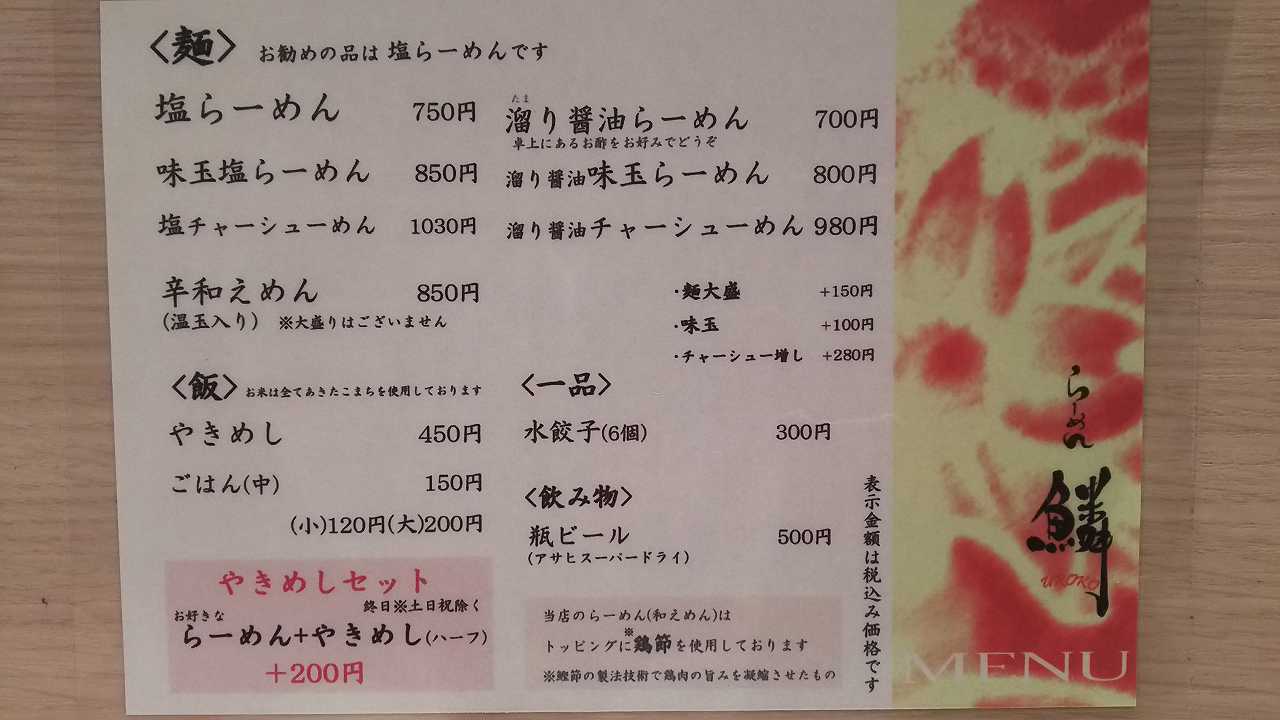 〈麺〉 お勧めの品は 塩らーめんです
塩らーめん 750円
味玉塩らーめん 850円
塩チャーシューめん 1030円
辛和えめん 850円
(温玉入り) ※大盛りはございません
たま
溜り醤油らーめん 700円
卓上にあるお酢をお好みでどうぞ
溜り醤油味玉らーめん 800円
溜り醤油チャーシューめん 980円
・麺大盛 +150円
・味玉 +100円
・チャーシュー増し +280円
〈飯〉 お米は全てあきたこまちを使用しております
やきめし 450円
ごはん(中) 150円
(小)120円(大)200円
やきめしセット
終日※土日祝除く
お好きな
らーめん+やきめし(ハーフ)
+200円
〈一品〉
水餃子(6個) 300円
〈飲み物〉
瓶ビール 500円
(アサヒスーパードライ)
当店のらーめん(和えめん)は
トッピングに※鶏節を使用しております
※鰹節の製法技術で鶏肉の旨みを凝縮させたもの
表示金額は税込み価格です
らーめん
鱗
UROKO
MENU